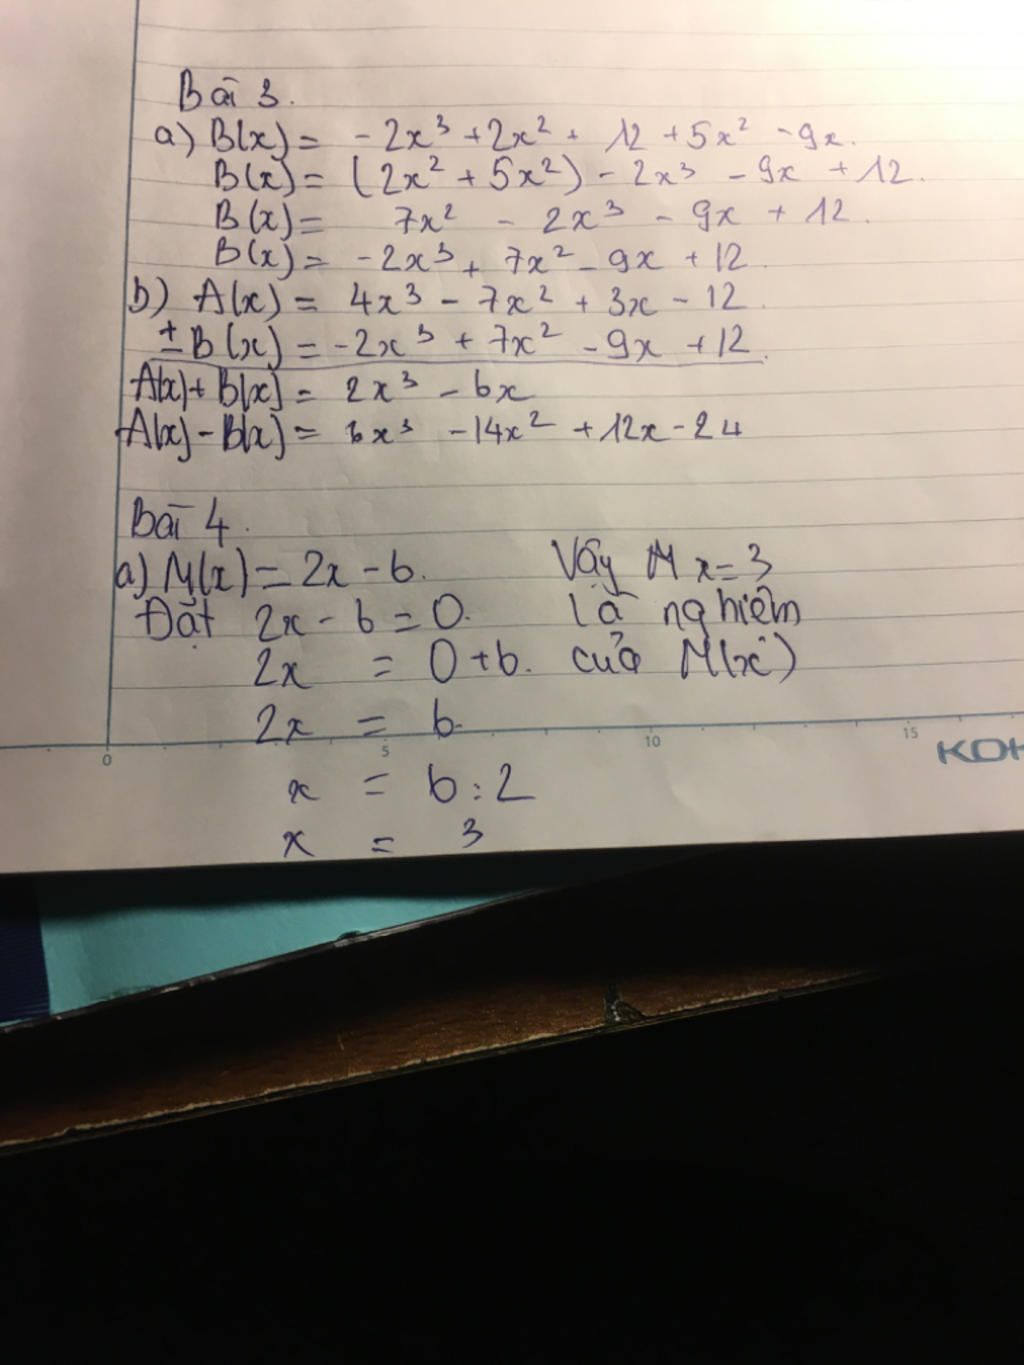 Bài 3.
a) B(x) = -2x³ + 2x² + 12 + 5x² - 9x.
B(x) = (2x² + 5x²) - 2x³ - 9x + 12.
B(x) = 7x² - 2x³ - 9x + 12.
B(x) = -2x³ + 7x² - 9x + 12
b) A(x) = 4x³ - 7x² + 3x - 12.
± B(x) = -2x³ + 7x² - 9x + 12.
A(x) + B(x) = 2x³ - 6x
A(x) - B(x) = 6x³ - 14x² + 12x - 24
Bài 4.
a) M(x) = 2x - 6.
Đặt 2x - 6 = 0.
2x = 0 + 6.
2x = 6
x = 6 : 2
x = 3
Vậy M x = 3
là nghiệm
của M(x)
0 5 10 15
KOK